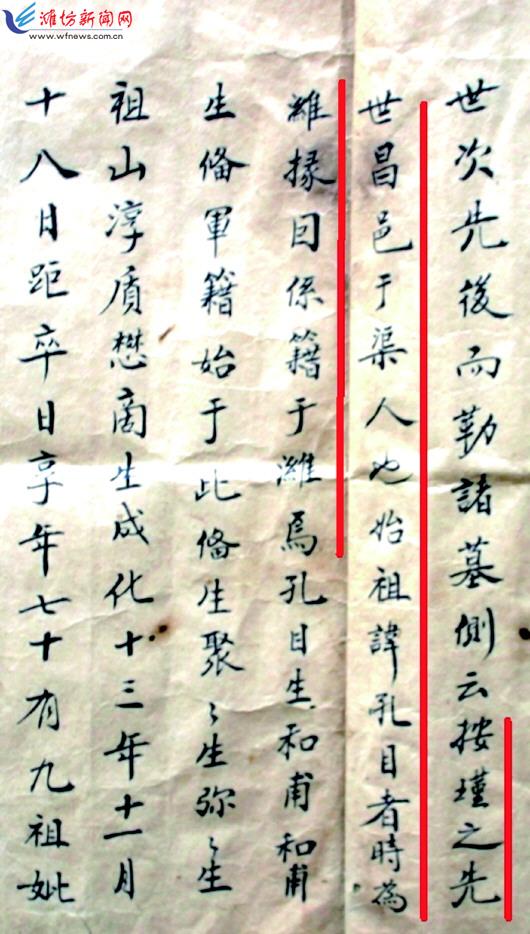 潍坊新闻网
www.wfnews.com.cn
世次先後而勒諸墓側云按瑾之先
世昌邑于渠人也始祖諱孔目者時為
濰掾因係籍于濰焉孔目生和甫和甫
生俻軍籍始于此俻生聚〻生弥〻生
祖山淳质懋啇生成化十三年十一月
十八日距卒日享年七十有九祖妣